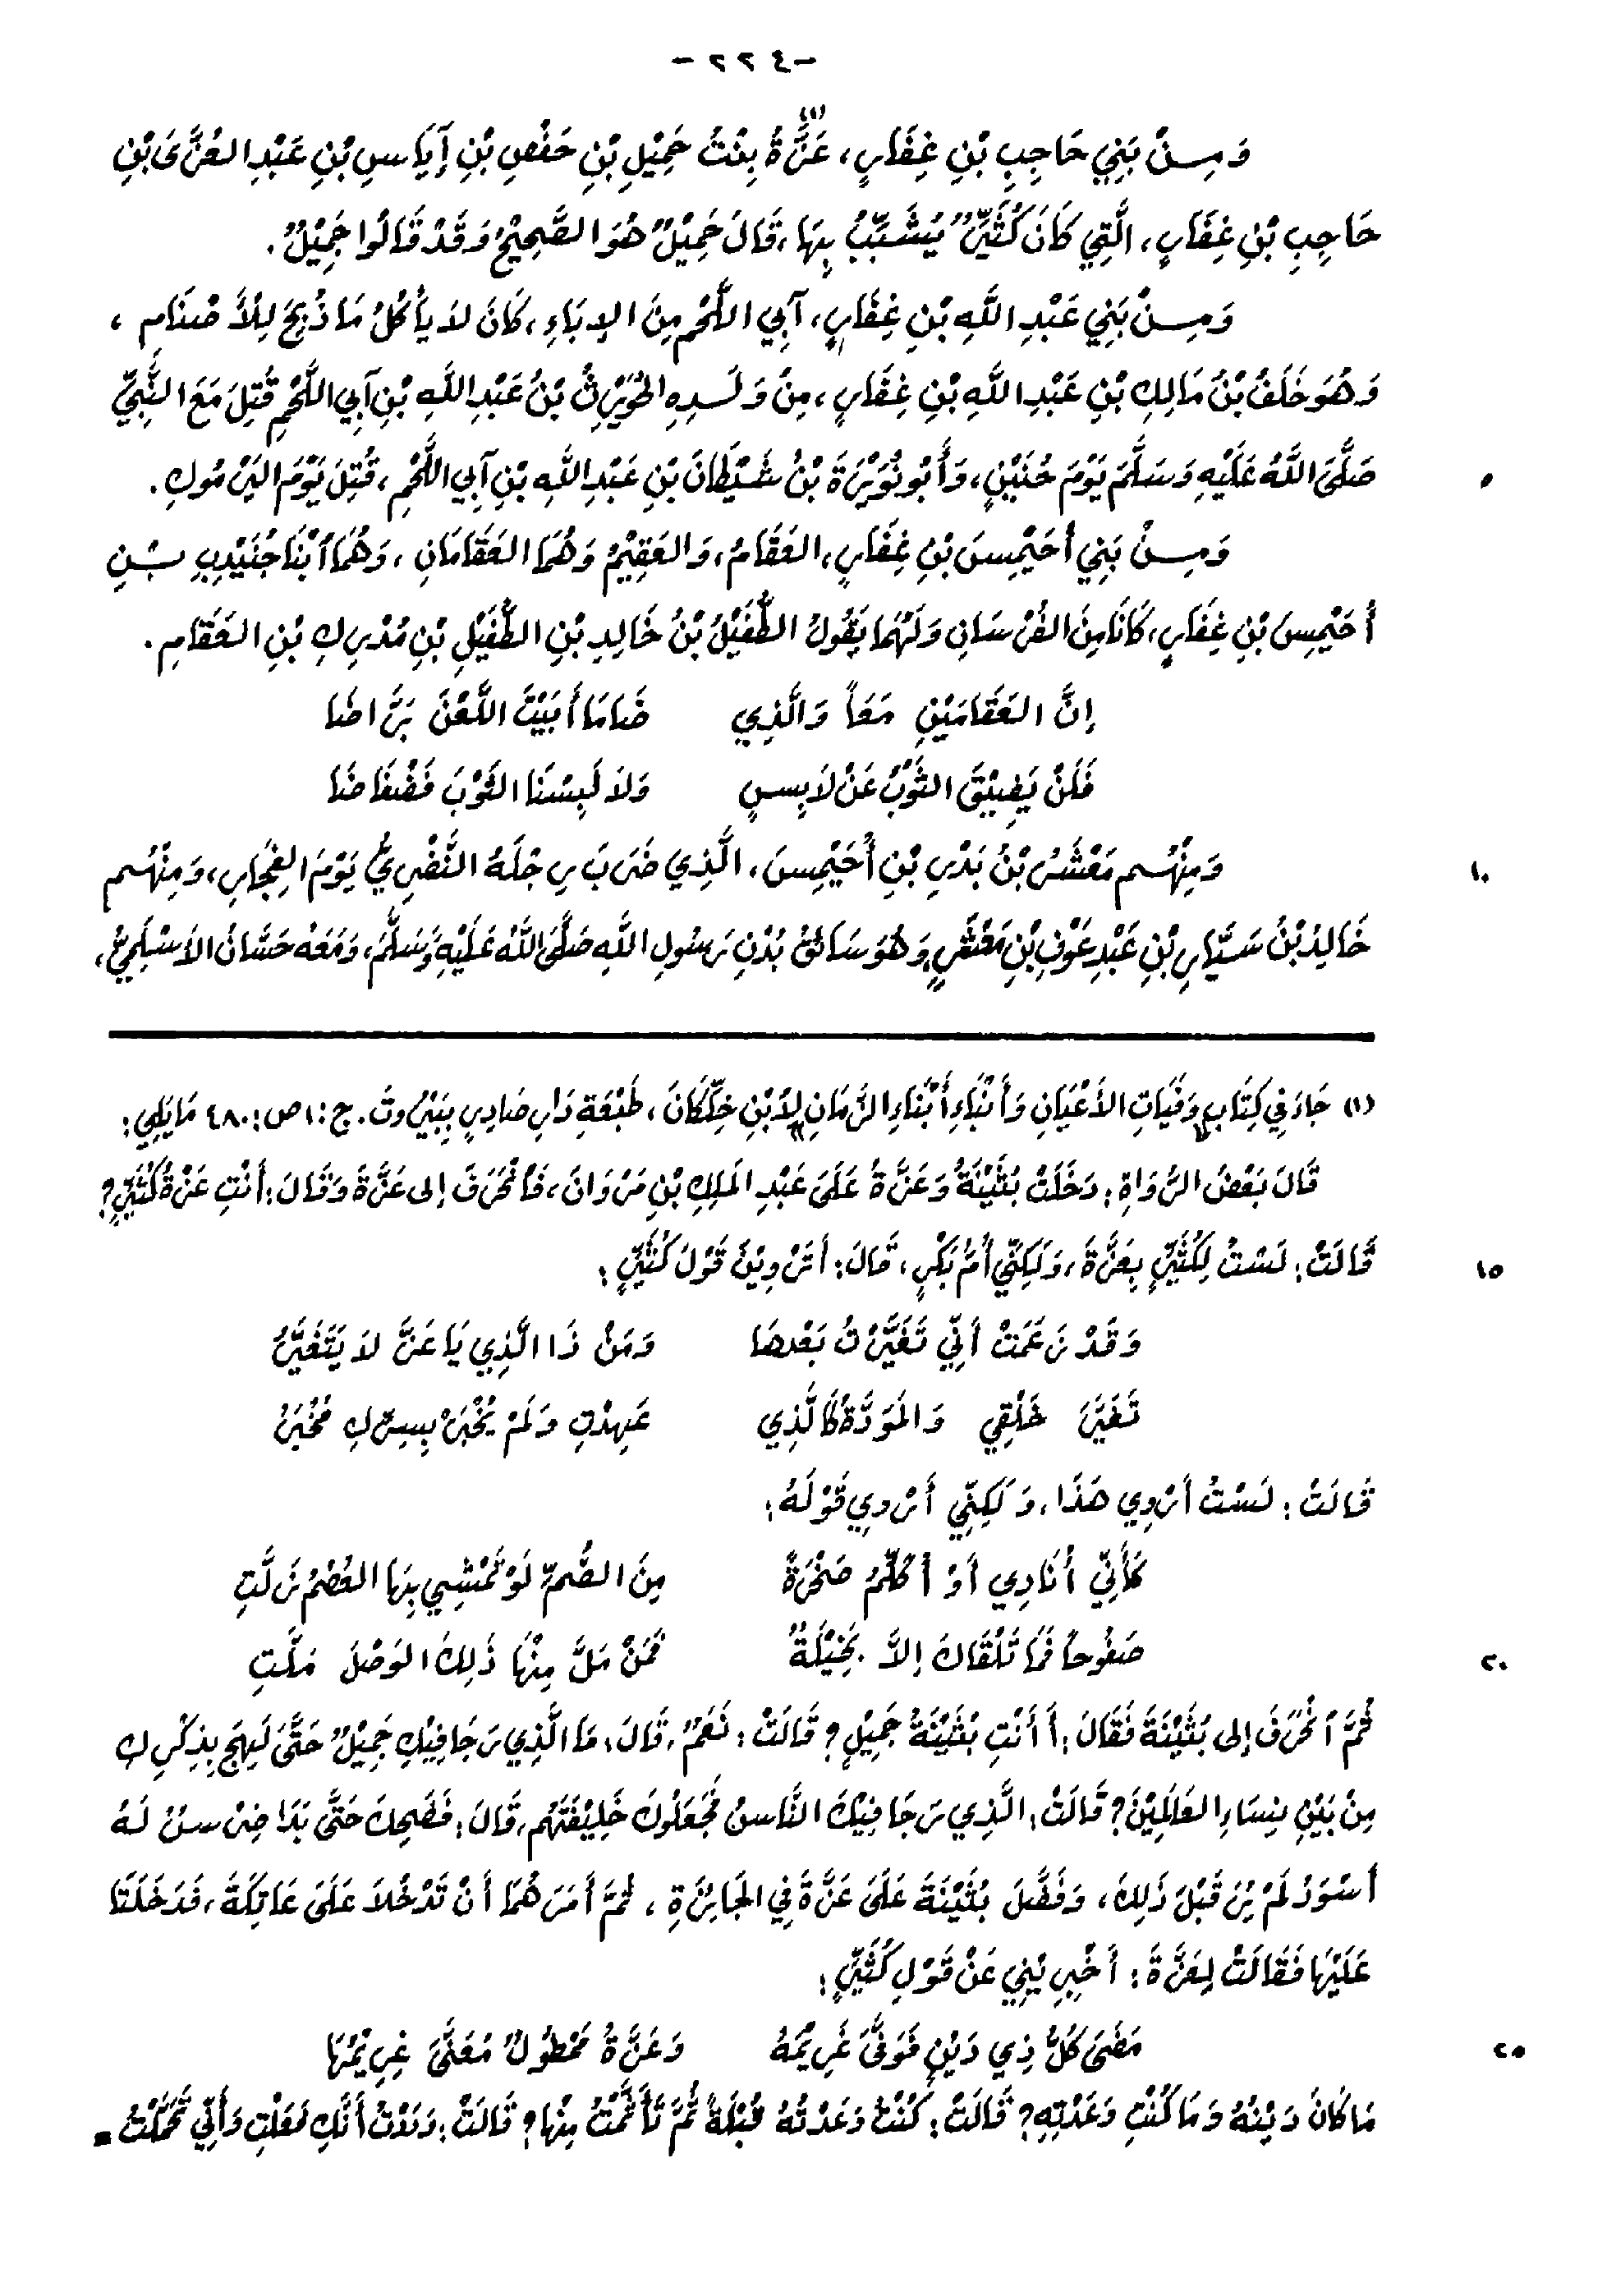 -٤٢٢-
وَمِنْ بَنِي حَاجِبِ بْنِ غِفَارٍ، عَزَّةُ(١) بِنْتُ حَمِيْلِ بْنِ حَفْصِ بْنِ إِيَاسِ بْنِ عَبْدِ العُزَّى بْنِ
حَاجِبِ بْنِ غِفَارٍ، الَّتِي كَانَ كُثَيِّرٌ يُشَبِّبُ بِهَا، قَالَ حَمِيْلٌ هُوَ الصَّحِيْحُ وَقَدْ قَالُوا جَمِيْلٌ.
وَمِنْ بَنِي عَبْدِ اللَّهِ بْنِ غِفَارٍ، آبِي اللَّحْمِ مِنَ الإِبَاءِ، كَانَ لَا يَأْكُلُ مَا ذُبِحَ لِلْأَصْنَامِ،
وَهُوَ خَلَفُ بْنُ مَالِكِ بْنِ عَبْدِ اللَّهِ بْنِ غِفَارٍ، مِنْ وَلَدِهِ الحُوَيْرِثُ بْنُ عَبْدِ اللَّهِ بْنِ آبِي اللَّحْمِ قُتِلَ مَعَ النَّبِيِّ
صَلَّى اللَّهُ عَلَيْهِ وَسَلَّمَ يَوْمَ حُنَيْنٍ، وَأَبُو نُوَيْرَةَ بْنُ شَيْطَانَ بْنِ عَبْدِ اللَّهِ بْنِ آبِي اللَّحْمِ، قُتِلَ يَوْمَ اليَرْمُوكِ.
٥
وَمِنْ بَنِي أُحَيْمِسَ بْنِ غِفَارٍ، العَقَامُ، وَالعَقِيْمُ وَهُمَا العَقَامَانِ، وَهُمَا ابْنَا جُنَيْدِبِ بْنِ
أُحَيْمِسَ بْنِ غِفَارٍ، كَانَا مِنَ الفُرْسَانِ وَلَهُمَا يَقُولُ الطُّفَيْلُ بْنُ خَالِدِ بْنِ الطُّفَيْلِ بْنِ مُدْرِكِ بْنِ العَقَامِ.
إِنَّ العَقَامَيْنِ مَعَاً وَالَّذِي ضَامَا أَبَيْتَ اللَّعْنَ بَرَّاضَا
فَلَنْ يَضِيْقَ الثَّوْبُ عَنْ لَابِسٍ وَلَا لَبِسْنَا الثَّوْبَ فَضْفَاضَا
وَمِنْهُم مَعْشَرُ بْنُ بَدْرِ بْنِ أُحَيْمِسَ، الَّذِي ضَرَبَ رِجْلَهُ النَّصْرِيُّ يَوْمَ الفِجَارِ، وَمِنْهُم
١٠
خَالِدُ بْنُ سَيَّارِ بْنِ عَبْدِ عَوْفِ بْنِ مَعْشَرٍ وَهُوَ سَائِقُ بُدْنِ رَسُولِ اللَّهِ صَلَّى اللَّهُ عَلَيْهِ وَسَلَّمَ، وَمَعَهُ حَسَّانُ الأَسْلَمِيُّ،
(١) جَاءَ فِي كِتَابِ وَفَيَاتِ الأَعْيَانِ وَأَنْبَاءِ أَبْنَاءِ الزَّمَانِ لِابْنِ خِلِّكَانَ، طَبْعَةِ دَارِ صَادِرٍ بِبَيْرُوتَ. ج: ١ ص: ٤٨٠ مَا يَلِي:
قَالَ بَعْضُ الرُّوَاةِ: دَخَلَتْ بُثَيْنَةُ وَعَزَّةُ عَلَى عَبْدِ المَلِكِ بْنِ مَرْوَانَ، فَانْحَرَفَ إِلى عَزَّةَ وَقَالَ: أَنْتِ عَزَّةُ كُثَيِّرٍ؟
قَالَتْ: لَسْتُ لِكُثَيِّرٍ بِعَزَّةَ، وَلَكِنِّي أُمُّ بَكْرٍ، قَالَ: أَتَرْوِيْنَ قَوْلَ كُثَيِّرٍ:
١٥
وَقَدْ زَعَمَتْ أَنِّي تَغَيَّرْتُ بَعْدَهَا وَمَنْ ذَا الَّذِي يَا عَزَّ لَا يَتَغَيَّرُ
تَغَيَّرَ خَلْقِي وَالمَوَدَّةُ كَالَّذِي عَهِدْتِ وَلَمْ يُخْبَرْ بِسِرِّكِ مُخْبَرُ
قَالَتْ: لَسْتُ أَرْوِي هَذَا، وَلَكِنِّي أَرْوِي قَوْلَهُ:
كَأَنِّي أُنَادِي أَوْ أُكَلِّمُ صَخْرَةً مِنَ الصُّمِّ لَوْ تَمْشِي بِهَا العُصْمُ زَلَّتِ
صَفُوحاً فَمَا تَلْقَاكَ إِلاَّ بَخِيْلَةً فَمَنْ مَلَّ مِنْهَا ذَلِكَ الوَصْلَ مَلَّتِ
٢٠
ثُمَّ انْحَرَفَ إِلى بُثَيْنَةَ فَقَالَ: أَأَنْتِ بُثَيْنَةُ جَمِيْلٍ؟ قَالَتْ: نَعَمْ، قَالَ: مَا الَّذِي رَجَا فِيْكِ جَمِيْلٌ حَتَّى لَهِجَ بِذِكْرِكِ
مِنْ بَيْنِ نِسَاءِ العَالَمِيْنَ؟ قَالَتْ: الَّذِي رَجَا فِيْكَ النَّاسُ فَجَعَلُوكَ خَلِيْفَتَهُم، قَالَ: فَضَحِكَ حَتَّى بَدَا ضِرْسٌ لَهُ
أَسْوَدُ لَمْ يُرَ قَبْلَ ذَلِكَ، وَفَضَّلَ بُثَيْنَةَ عَلَى عَزَّةَ فِي الجَائِزَةِ، ثُمَّ أَمَرَهُمَا أَنْ تَدْخُلَا عَلَى عَاتِكَةَ، فَدَخَلَتَا
عَلَيْهَا فَقَالَتْ لِعَزَّةَ: أَخْبِرِيْنِي عَنْ قَوْلِ كُثَيِّرٍ:
قَضَى كُلُّ ذِي دَيْنٍ فَوَفَّى غَرِيْمَهُ وَعَزَّةُ مَمْطُولٌ مُعَنَّى غَرِيْمُهَا
٢٥
مَا كَانَ دَيْنُهُ وَمَا كُنْتِ وَعَدْتِهِ؟ قَالَتْ: كُنْتُ وَعَدْتُهُ قُبْلَةً ثُمَّ تَأَثَّمْتُ مِنْهَا؟ قَالَتْ: وَدَدْتُ أَنَّكِ فَعَلْتِ وَأَنِّي تَحَمَّلْتُ =